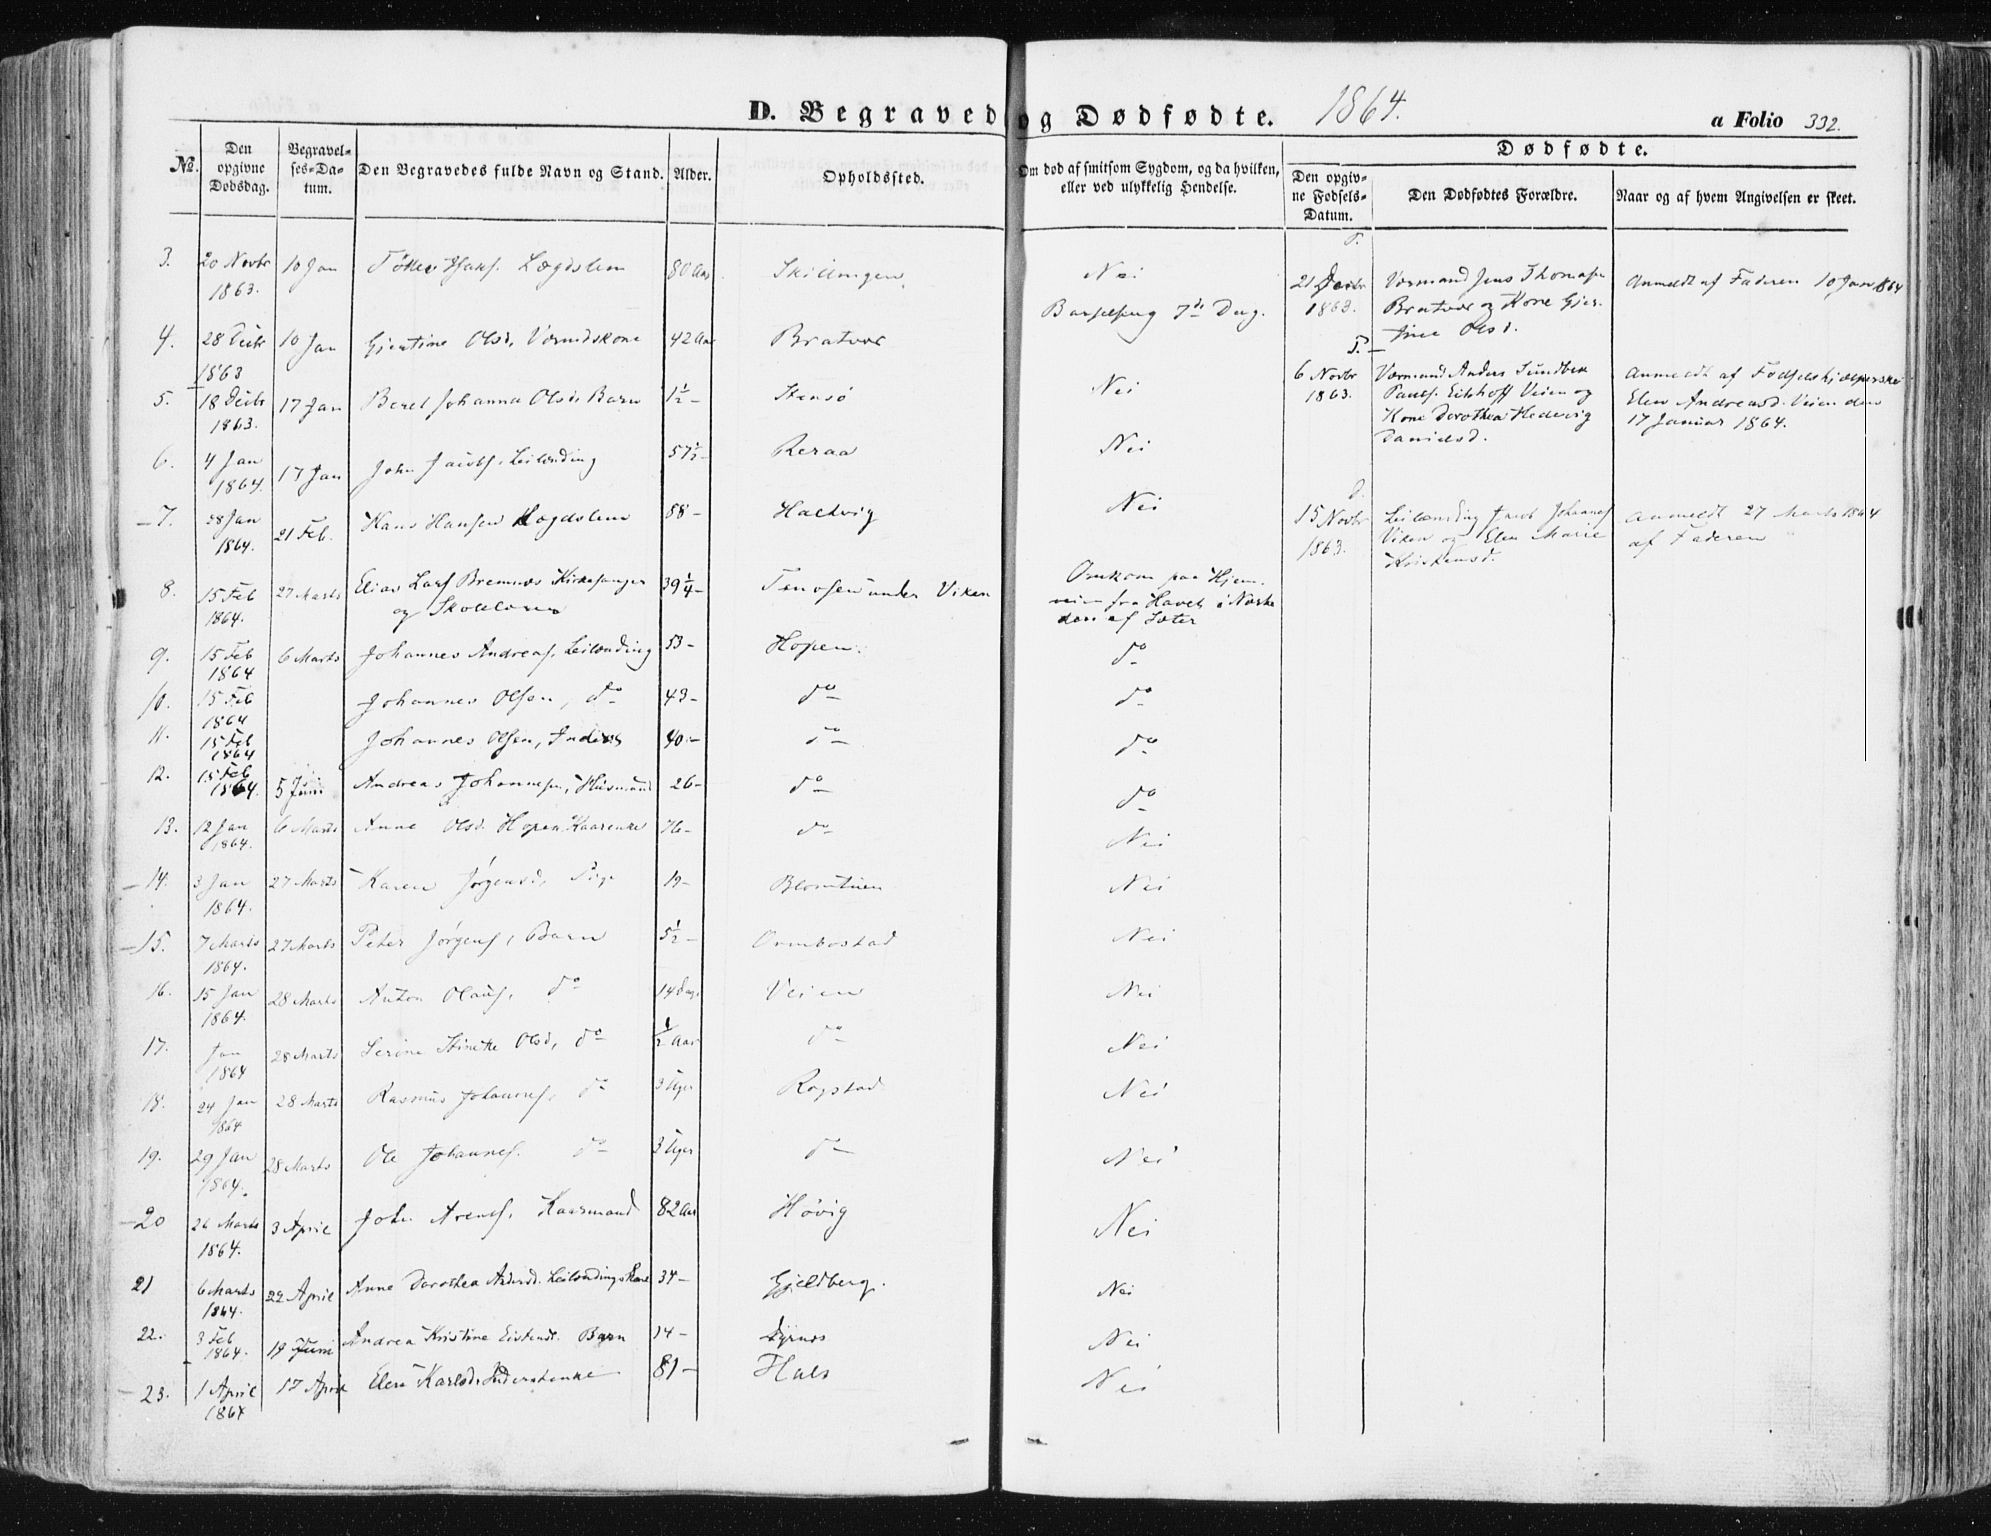 D. Begravede og Dødfødte. 1864. a Folio 332.
No. Den opgivne Dødsdag. Begravelses-Datum. Den Begravedes fulde Navn og Stand. Alder. Opholdssted. Om død af smitsom Sygdom, og da hvilken, eller ved ulykkelig Hendelse. Dødfødte.
Den opgivne Fødsels-Datum. Den Dødfødtes Forældre. Naar og af hvem Angivelsen er skeet.
3. 20 Novbr 1863. 10 Jan Lægdslem 80 Aar Skillingen Nei
4. 28 Decbr 1863 10 Jan Gjertine Olsd. 42 Aar Bratvær Barselseng 7de Dag.
5. 18 Decbr 1863. 17 Jan Beret Johanna Olsd. Barn 1½ – Stensø Nei
6. 4 Jan 1864. 17 Jan John Jacobs. Leilænding 57½ – Reraa Nei
7. 28 Jan 1864. 21 Feb. Hans Hansen Lægdslem 58 – Haltvig Nei
8. 15 Feb 1864. 27 Marts Elias Lars. Bremnes Kirkesanger og Skolelærer 39¼ – under Viken Omkom paa Hjemveien fra Havet
9. 15 Feb 1864 6 Marts Johannes Andreas. Leilænding 53 – Hopen do
10. 15 Feb 1864 Johannes Olsen, do 43 – do do
11. 15 Feb 1864 Johannes Olsen, Inderst 40 – do do
12. 15 Feb 1864. 5 Juni Andreas Johannesen, Husmand 26 – do do
13. 12 Jan 1864. 6 Marts Anne Olsd. Hopen Kaarenke 76 – do Nei
14. 3 Jan 1864. 27 Marts Karen Jørgensd. Pige 19 – Blomtuen Nei
15. 7 Marts 1864. 27 Marts Peter Jørgens, Barn 5½ – Ormbostad Nei
16. 15 Jan 1864. 28 Marts Anton Olaus. do 14 Dag. Veien Nei
17. Jan 1864 28 Marts Olsd, do ½ Aar do Nei
18. 24 Jan 1864 28 Marts Rasmus Johannes. do 3 Uger Rogstad Nei
19. 29 Jan 1864. 28 Marts Ole Johannes. do 3 Uger do Nei
20 26 Marts 1864. 3 April John Arents. Kaarmand 82 Aar Høvig Nei
21 6 Marts 1864. 22 April Anne Dorothea Leilændingskone 34 – Gjeldberg. Nei
22. 3 Feb 1864. 19 Juni Andrea Kristine Barn 14 – Dyrnes Nei
23. 1 April 1864 17 April Elen Karlsd. Inderstenke 81 – Hals Nei
21 Decbr 1863. Jens Thomasen Bratvær og Kone Gjertine Olsd. Anmeldt af Faderen 10 Jan 1864
6 Novbr 1863. Anders Sundbek Veien og Kone Dorothea Hedevig Danielsd. Anmeldt af Fødselshjælperske Elen Andreasd. Veien den 17 Januar 1864.
15 Novbr 1863. Leilænding Jacob Johannes Viken og Elen Marie Kristensd. Anmeldt 27 Marts 1864 af Faderen